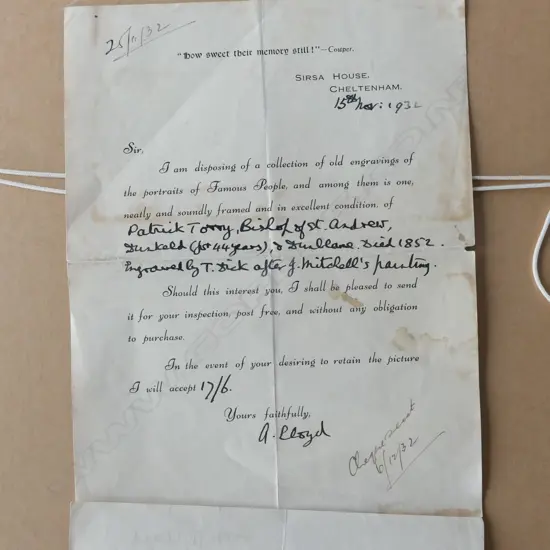 25/11/32
"How sweet their memory still!"—Cowper.
SIRSA HOUSE,
CHELTENHAM.
15th Nov: 1932
Sir,
I am disposing of a collection of old engravings of
the portraits of Famous People, and among them is one,
neatly and soundly framed and in excellent condition, of
Patrick Torry, Bishop of St. Andrew,
Dunkeld (for 44 years), & Dunblane. Died 1852.
Engraved by T. Dick after J. Mitchell's painting.
Should this interest you, I shall be pleased to send
it for your inspection, post free, and without any obligation
to purchase.
In the event of your desiring to retain the picture
I will accept 17/6.
Yours faithfully,
A. Lloyd
Cheque sent
6/12/32